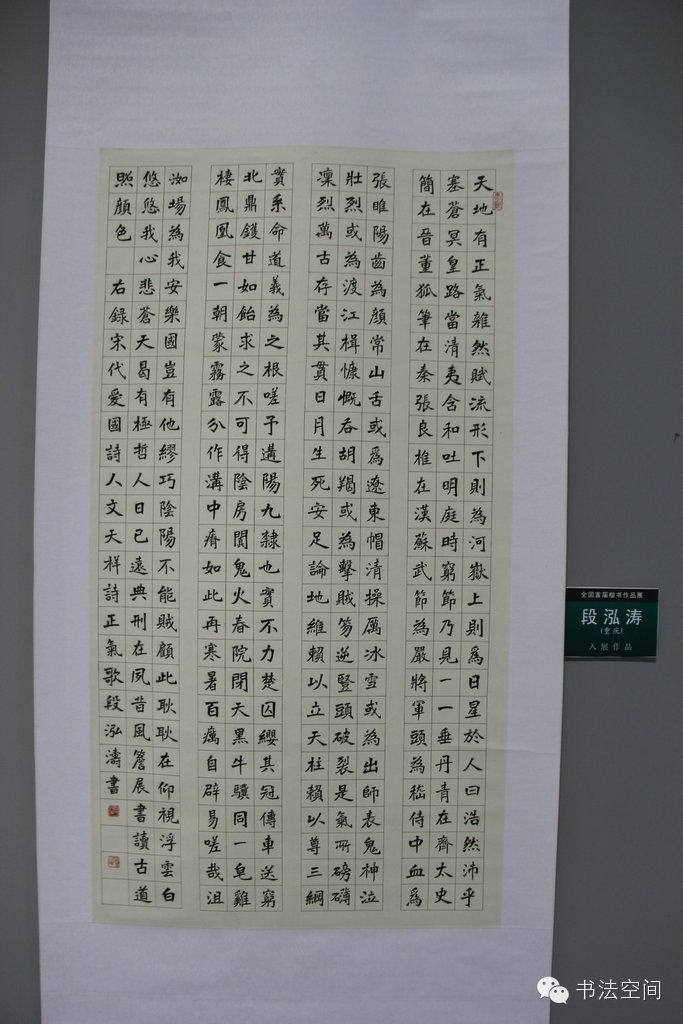 天地有正氣雜然賦流形下則為河嶽上則為日星於人曰浩然沛乎
塞蒼冥皇路當清夷含和吐明庭時窮節乃見一一垂丹青在齊太史
簡在晉董狐筆在秦張良椎在漢蘇武節為嚴將軍頭為嵇侍中血為
張睢陽齒為顏常山舌或為遼東帽清操厲冰雪或為出師表鬼神泣
壯烈或為渡江楫慷慨吞胡羯或為擊賊笏逆豎頭破裂是氣所磅礡
凜烈萬古存當其貫日月生死安足論地維賴以立天柱賴以尊三綱
實系命道義為之根嗟予遘陽九隸也實不力楚囚纓其冠傳車送窮
北鼎鑊甘如飴求之不可得陰房闃鬼火春院閉天黑牛驥同一皂雞
棲鳳凰食一朝蒙霧露分作溝中瘠如此再寒暑百癘自辟易嗟哉沮
洳場為我安樂國豈有他繆巧陰陽不能賊顧此耿耿在仰視浮雲白
悠悠我心悲蒼天曷有極哲人日已遠典刑在夙昔風簷展書讀古道
照顏色 右錄宋代愛國詩人文天祥詩正氣歌段泓濤書
全国首届楷书作品展
段泓涛
(重庆)
入展作品
书法空间